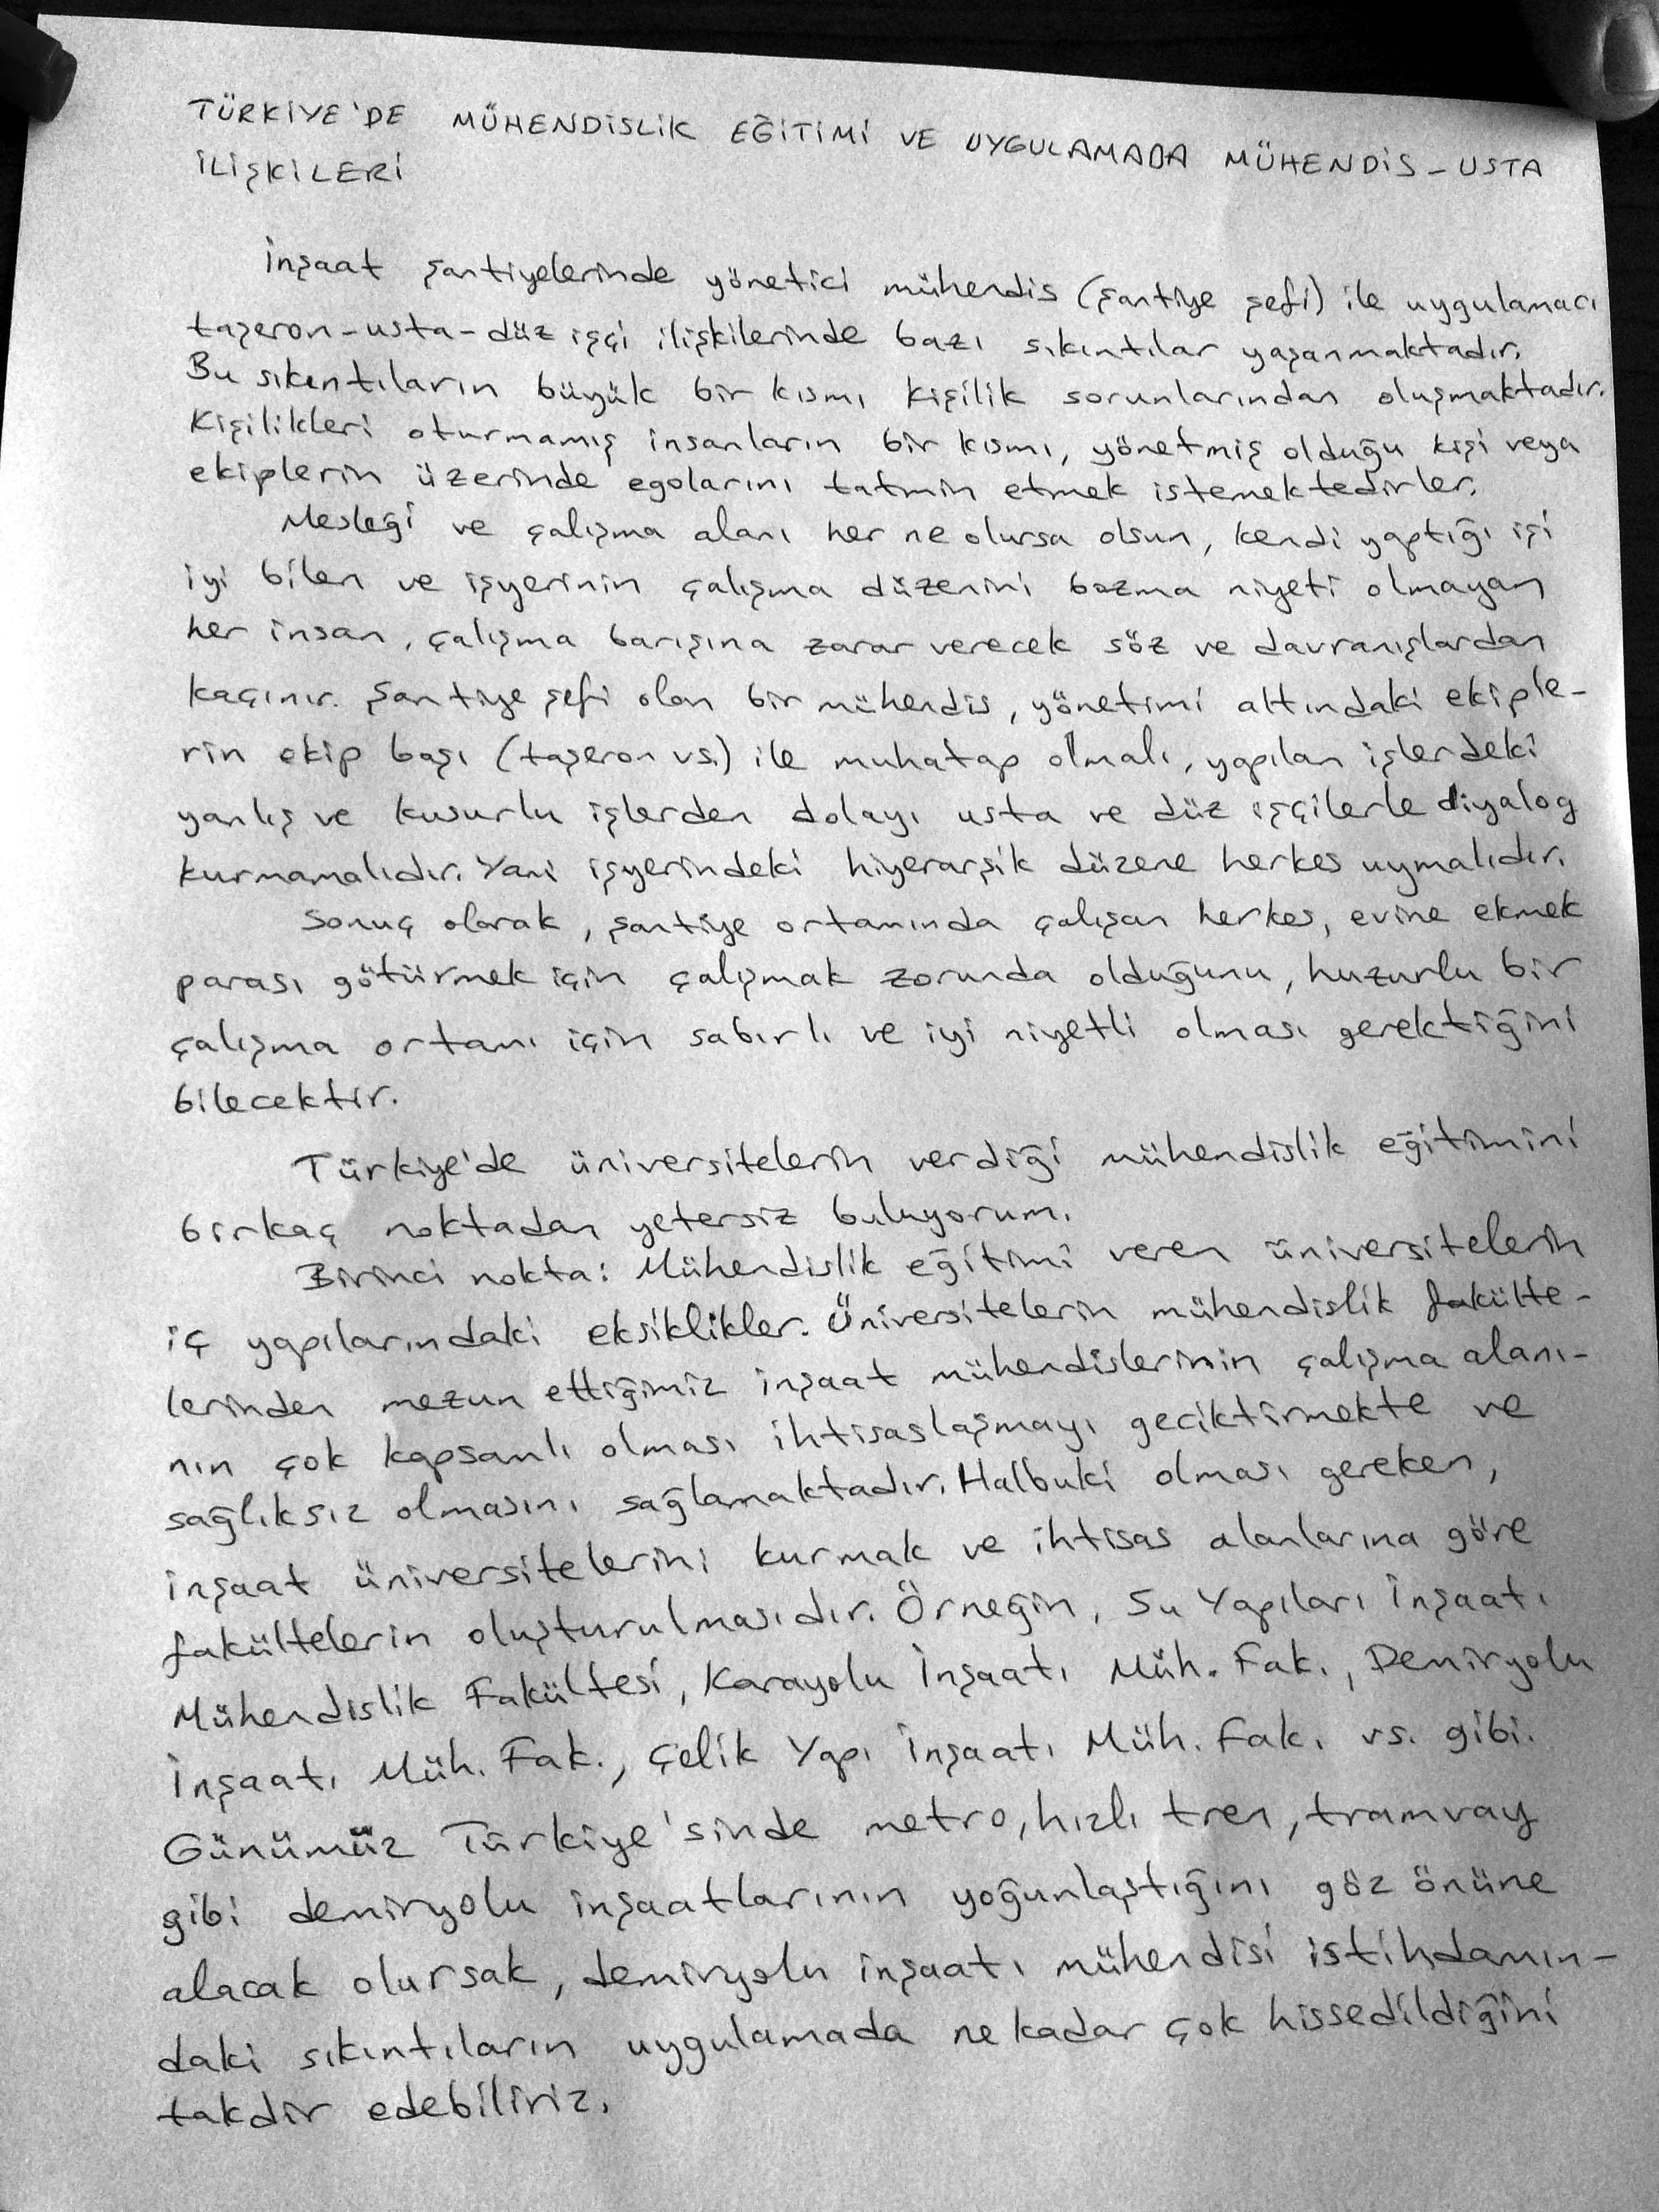 TÜRKİYE'DE MÜHENDİSLİK EĞİTİMİ VE UYGULAMADA MÜHENDİS-USTA
İLİŞKİLERİ
İnşaat şantiyelerinde yönetici mühendis (şantiye şefi) ile uygulamacı
taşeron-usta-düz işçi ilişkilerinde bazı sıkıntılar yaşanmaktadır.
Bu sıkıntıların büyük bir kısmı kişilik sorunlarından oluşmaktadır.
Kişilikleri oturmamış insanların bir kısmı, yönetmiş olduğu kişi veya
ekiplerin üzerinde egolarını tatmin etmek istemektedirler.
Mesleği ve çalışma alanı her ne olursa olsun, kendi yaptığı işi
iyi bilen ve işyerinin çalışma düzenini bozma niyeti olmayan
her insan, çalışma barışına zarar verecek söz ve davranışlardan
kaçınır. Şantiye şefi olan bir mühendis, yönetimi altındaki ekiple-
rin ekip başı (taşeron vs.) ile muhatap olmalı, yapılan işlerdeki
yanlış ve kusurlu işlerden dolayı usta ve düz işçilerle diyalog
kurmamalıdır. Yani işyerindeki hiyerarşik düzene herkes uymalıdır.
Sonuç olarak, şantiye ortamında çalışan herkes, evine ekmek
parası götürmek için çalışmak zorunda olduğunu, huzurlu bir
çalışma ortamı için sabırlı ve iyi niyetli olması gerektiğini
bilecektir.
Türkiye'de üniversitelerin verdiği mühendislik eğitimini
birkaç noktadan yetersiz buluyorum.
Birinci nokta: Mühendislik eğitimi veren üniversitelerin
iç yapılarındaki eksiklikler. Üniversitelerin mühendislik fakülte-
lerinden mezun ettiğimiz inşaat mühendislerinin çalışma alanı-
nın çok kapsamlı olması ihtisaslaşmayı geciktirmekte ve
sağlıksız olmasını sağlamaktadır. Halbuki olması gereken,
inşaat üniversitelerini kurmak ve ihtisas alanlarına göre
fakültelerin oluşturulmasıdır. Örneğin, Su Yapıları İnşaatı
Mühendislik Fakültesi, Karayolu İnşaatı Müh. Fak., Demiryolu
İnşaatı Müh. Fak., Çelik Yapı İnşaatı Müh. Fak. vs. gibi.
Günümüz Türkiye'sinde metro, hızlı tren, tramvay
gibi demiryolu inşaatlarının yoğunlaştığını göz önüne
alacak olursak, demiryolu inşaatı mühendisi istihdamın-
daki sıkıntıların uygulamada ne kadar çok hissedildiğini
takdir edebiliriz.